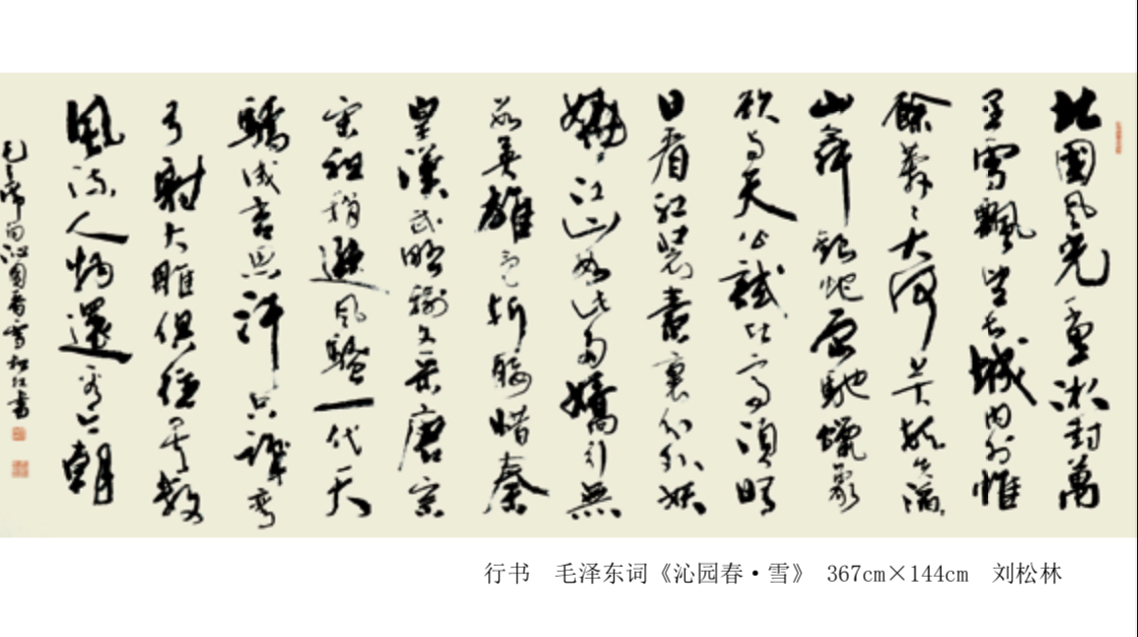 北國风光千里冰封萬
里雪飄望长城内外惟
餘莽々大河上下頓失滔々
山舞銀蛇原馳蠟象
欲与天公試比高須晴
日看红装素裹分外妖
嬈江山如此多嬌引無
數英雄竞折腰惜秦
皇漢武略输文采唐宗
宋祖稍遜风騷一代天
驕成吉思汗只識弯
弓射大雕俱往矣数
風流人物還看今朝
毛主席词沁园春雪松林书
行书 毛泽东词《沁园春·雪》 367cm×144cm 刘松林